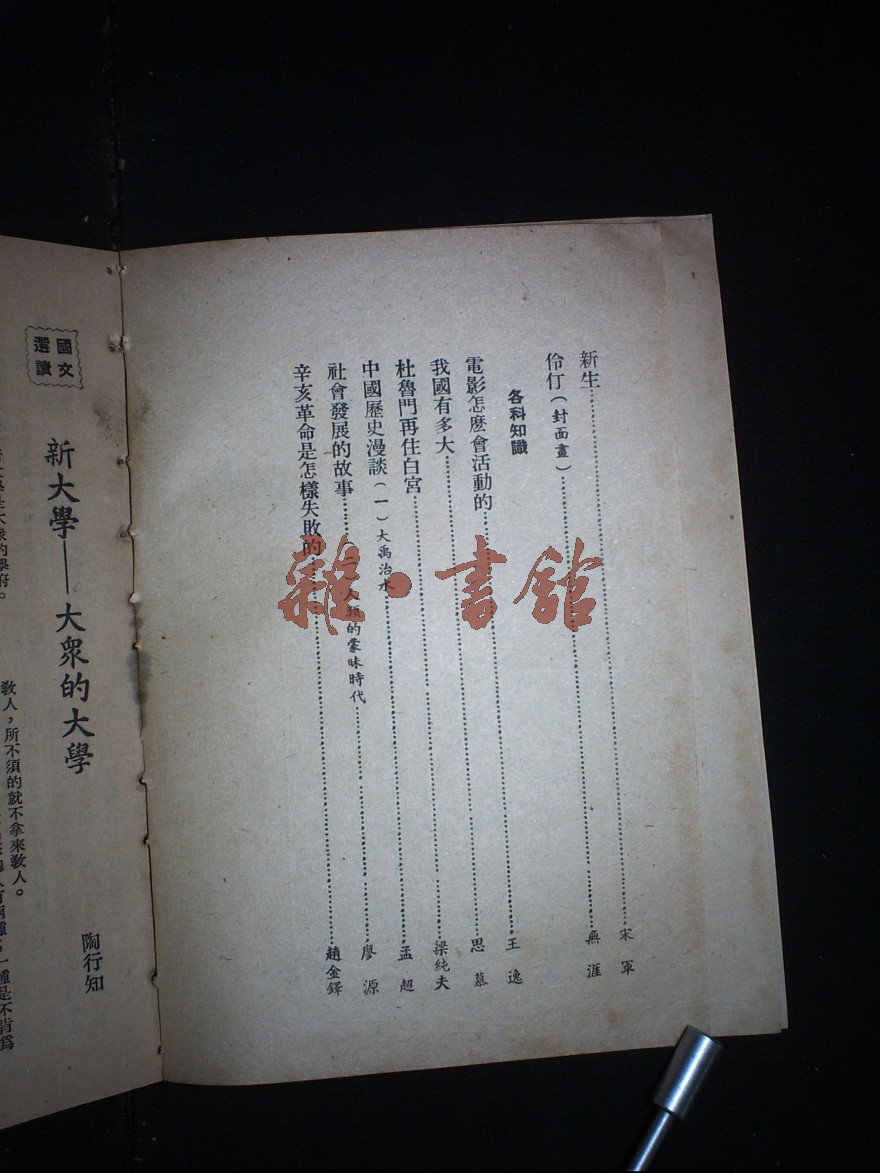 新生 宋軍
伶仃(封面畫) 無涯
各科知識
電影怎麼會活動的 王逸
我國有多大 思慕
杜魯門再住白宮 梁純夫
中國歷史漫談(一)大禹治水 孟超
社會發展的故事 人類的蒙昧時代 廖源
辛亥革命是怎樣失敗的 趙金鐸
雜·書館
國文
選讀
新大學——大衆的大學
陶行知
大衆的學府。
教人,所不須的就不拿來教人。
一種是不肯爲